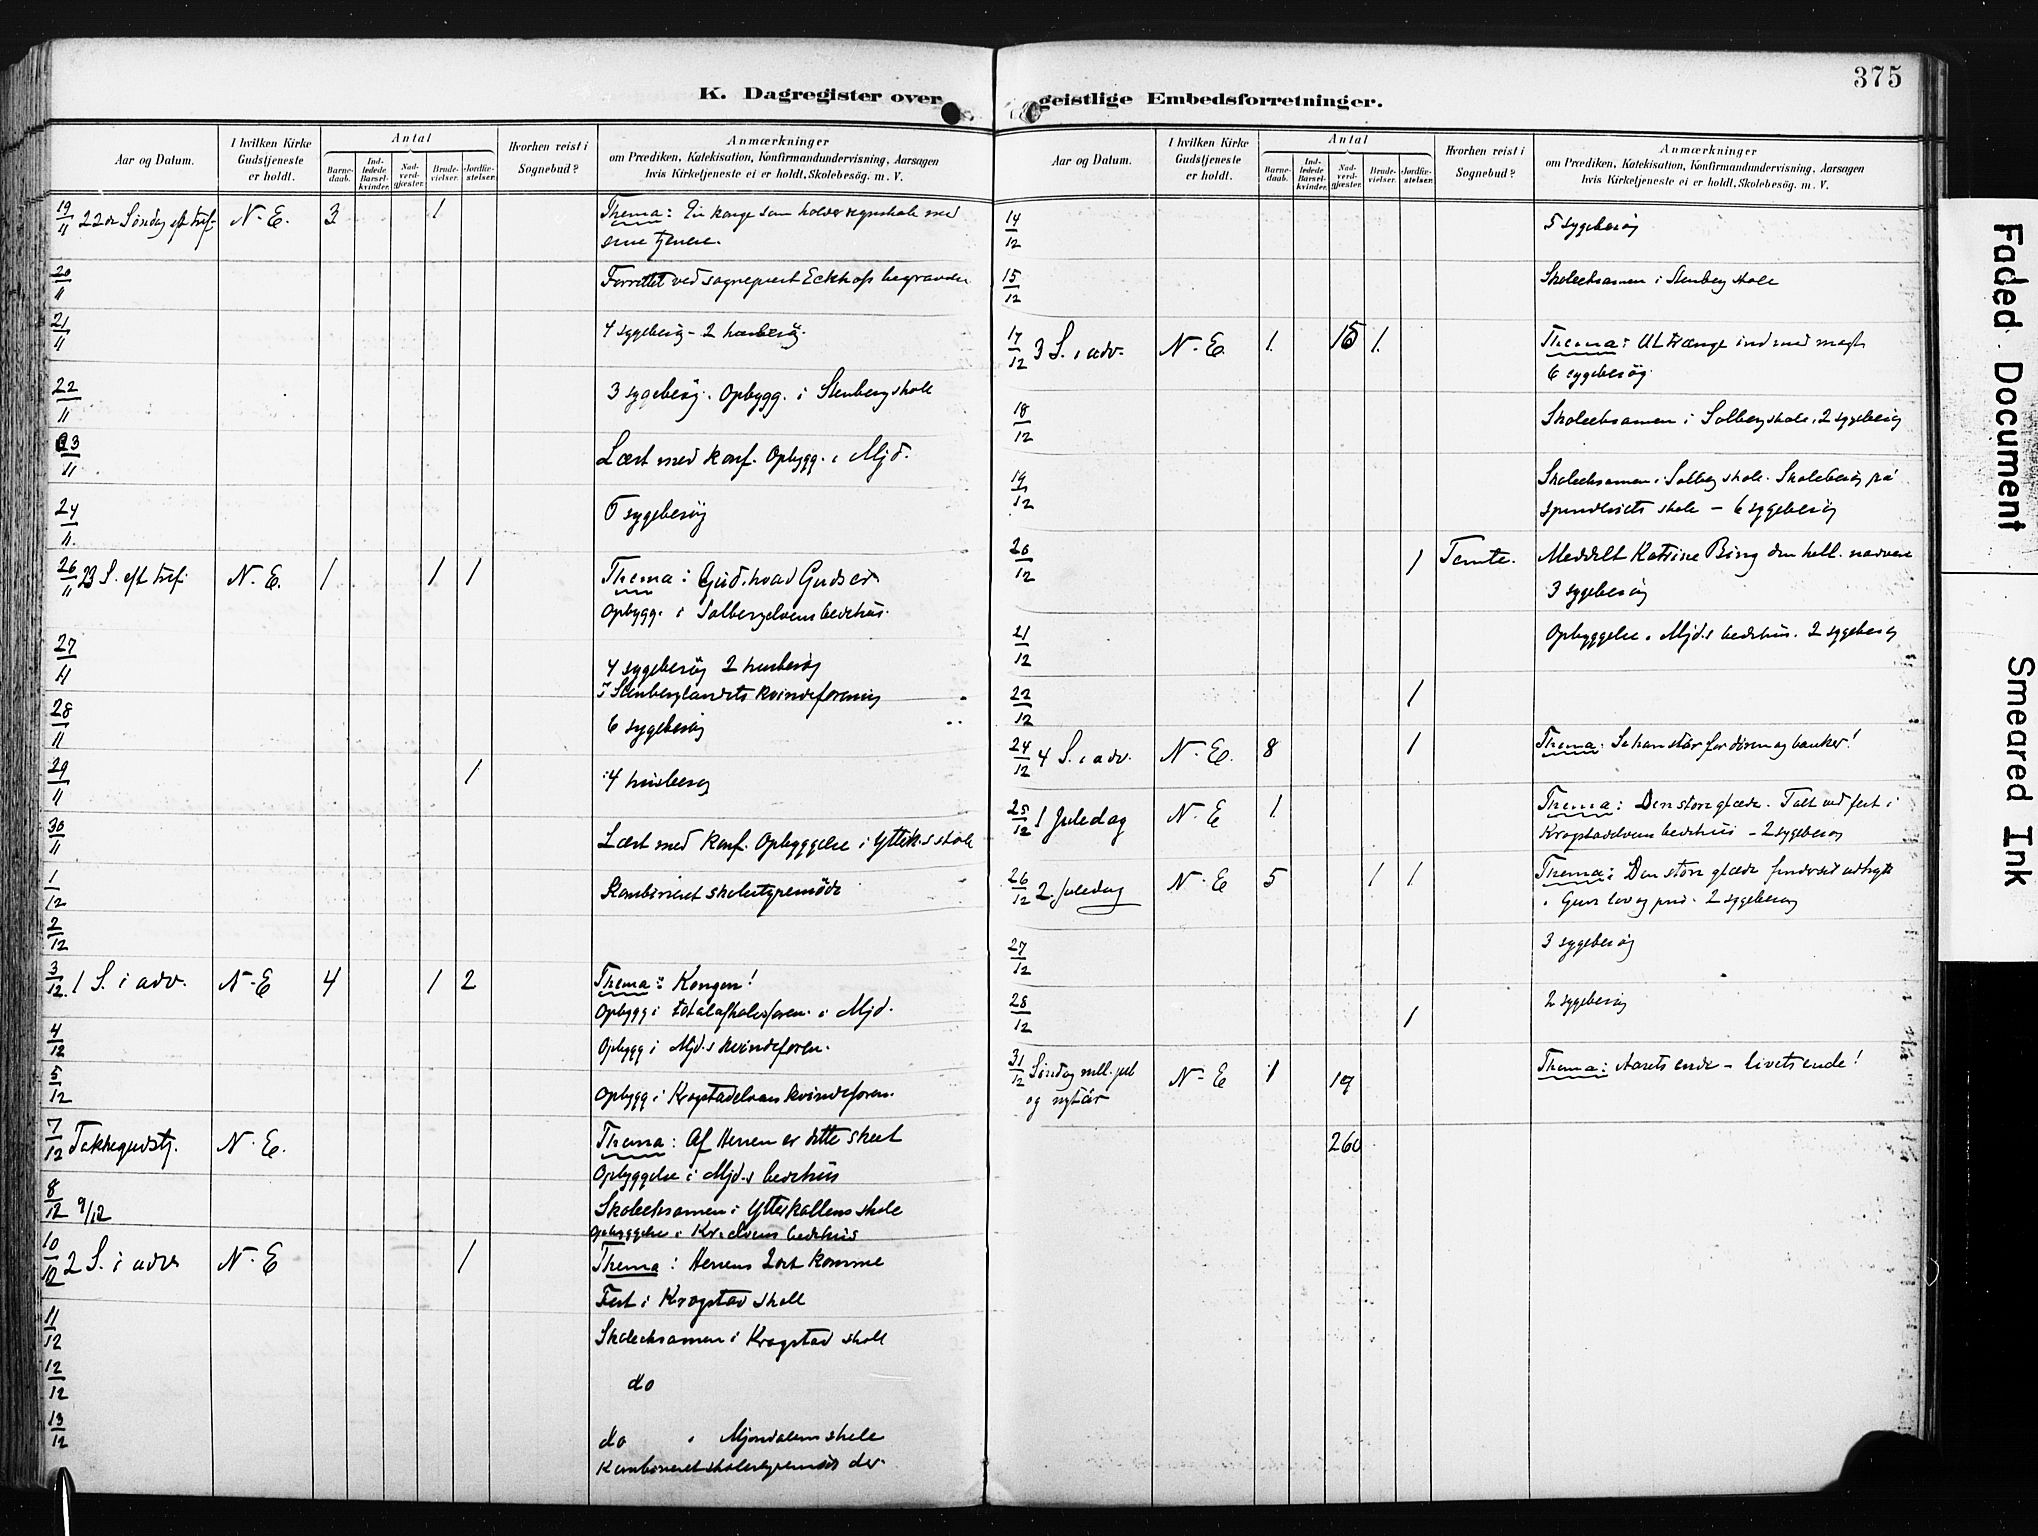 375
K. Dagregister over geistlige Embedsforretninger.
Aar og Datum.
I hvilken Kirke Gudstjeneste er holdt.
Antal
Barnedaab.
Indledede Barselkvinder.
Nadverdgjester.
Brudevielser.
Jordfæstelser.
Hvorhen reist i Sognebud?
Anmærkninger
om Prædiken, Katekisation, Konfirmandundervisning, Aarsagen
hvis Kirketjeneste ei er holdt, Skolebesøg. m. V.
19/11 22de Søndag eft tref. N. E. 3 1 Thema: En konge som holder regnskab med
sine tjenere.
20/11 Forrettet ved sogneprest Eckhoffs begravelse
21/11 4 sygebesøg - 2 husbesøg.
22/11 3 sygebesøg. Opbygg. i Stenberg skole
23/11 Læst med konf. Opbygg. i Mjd.
24/11. 5 sygebesøg
26/11 23 S. eft tref. N. E. 1 1 1 Thema: Gud, hvad Guds er
Opbygg. i Solbergelvens bedehus.
27/11 4 sygebesøg 2 husbesøg
I Stenberglandets kvindeforening
28/11 6 sygebesøg
29/11 1 4 husbesøg
30/11 Læst med konf. Opbyggelse i Yttek.s skole
1/12 Kombineret skolestyremöde
2/12
3/12. 1 S. i adv. N. E 4 1 2 Thema: Kongen!
Opbygg i totalafholdsforen. i Mjd.
4/12 Opbygg i Mjd.s kvindeforen.
5/12 Opbygg i Krogstadelvens kvindeforen.
7/12 Takkegudstj. N. E. Thema: Af Herren er dette skeet
Opbyggelse i Mjd.s bedehus
8/12 9/12 Skoleeksamen i Ytterkollens skole
Opbyggelse i Kr.elvens bedehus
10/12 2 S. i adv N. E 1 Thema: Herrens 2det komme
Fest i Krogstad skole
11/12 Skoleeksamen i Krogstad skole
12/12 do
13/12 do i Mjøndalens skole
Kombineret skolestyremöde der.
Aar og Datum.
I hvilken Kirke Gudstjeneste er holdt.
Antal
Barnedaab.
Indledede Barselkvinder.
Nadverdgjester.
Brudevielser.
Jordfæstelser.
Hvorhen reist i Sognebud?
Anmærkninger
om Prædiken, Katekisation, Konfirmandundervisning, Aarsagen
hvis Kirketjeneste ei er holdt, Skolebesøg. m. V.
14/12 5 sygebesøg
15/12 Skoleeksamen i Stenberg skole
17/12 3 S. i adv. N. E. 1. 15 1. Thema: At trænge ind med magt
6 sygebesøg
18/12 Skoleeksamen i Solberg skole. 2 sygebesøg
19/12 Skoleeksamen i Solberg skole. Skolebesøg på
skole - 6 sygebesøg
20/12 1 Tomte. Meddelt Katrine Bing den hell. nadvere
3 sygebesøg
21/12 Opbyggelse i Mjd.s bedehus. 2 sygebesøg
22/12 1
24/12 4 S. i adv. N. E. 8 1 Thema: Se han står for døren og banker!
25/12 1 Juledag N. E 1. Thema: Den store glæde. Talt ved fest i
Krogstadelvens bedehus - 2 sygebesøg
26/12 2 Juledag N. E 5 1 1 Thema: Den store glæde finder sit udtryk
i Guds lov og pris. 2 sygebesøg
27/12 3 sygebesøg
28/12 1 2 sygebesøg
31/12 Søndag mell. jul N. E 1 19 Thema: Aarets ende - livets ende!
og nytår
260
Faded Document
Smeared Ink